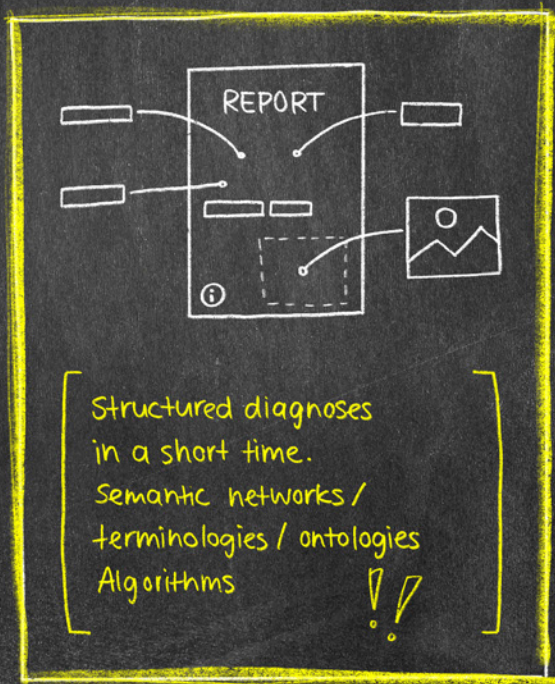 REPORT
i
Structured diagnoses
in a short time.
Semantic networks /
terminologies / ontologies
Algorithms
!!